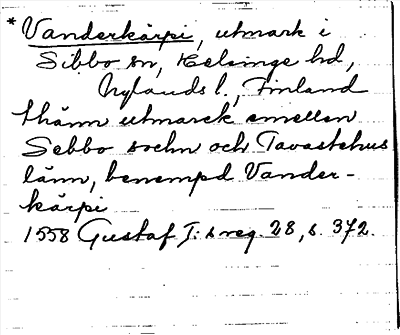 * Vanderkärpi, utmark i
Sibbo sn, Helsinge hd,
Nylands l., Finland
thänn utmarck emellen
Sebbo sochn och Tavastehus
länn, benempd Vander-
kärpi
1558 Gustaf I:s reg. 28, s. 372.